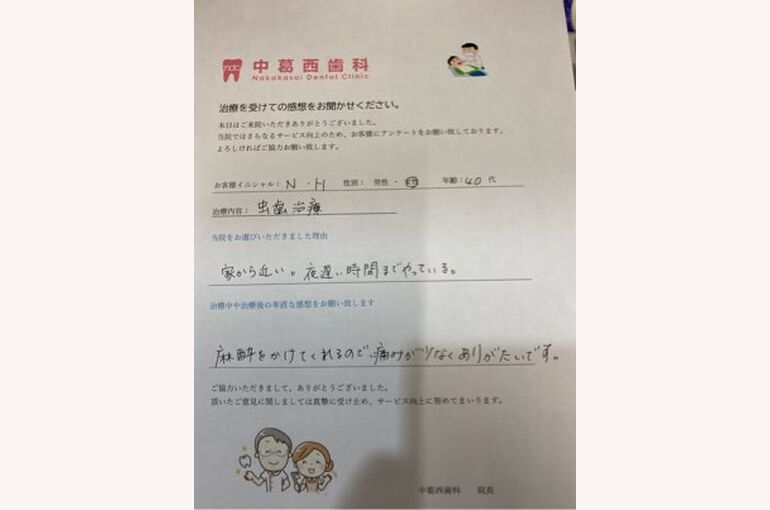 ndc 中葛西歯科
Nakakasai Dental Clinic
治療を受けての感想をお聞かせください。
本日はご来院いただきありがとうございました。
当院ではさらなるサービス向上のため、お客様にアンケートをお願い致しております。
よろしければご協力お願い致します。
お客様イニシャル： N ・ H 性別： 男性 ・ 女性 年齢：40 代
治療内容： 虫歯治療
当院をお選びいただきました理由
家から近い。夜遅い時間までやっている。
治療中や治療後の率直な感想をお願い致します
麻酔をかけてくれるので痛みが少なくありがたいです。
ご協力いただきまして、ありがとうございました。
頂いたご意見に関しましては真摯に受け止め、サービス向上に努めてまいります。
中葛西歯科 院長